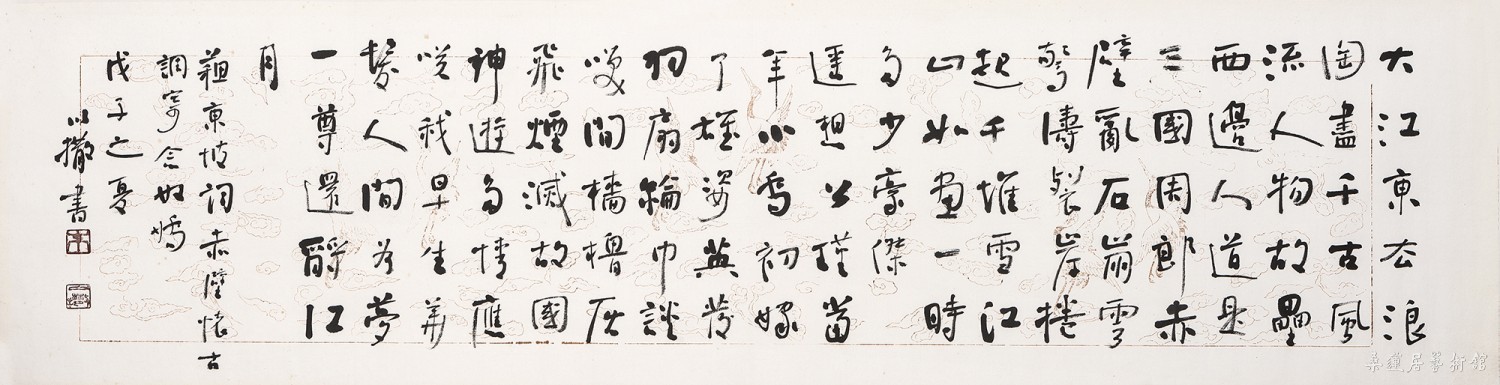 大江東去浪
陶盡千古風
流人物故壘
西邊人道是
三國周郎赤
壁亂石崩雲
驚濤裂岸捲
起千堆雪江
山如畫一時
多少豪傑
遥想公瑾當
年小喬初嫁
了雄姿英發
羽扇綸巾談
笑間檣櫓灰
飛煙滅故國
神遊多情應
笑我早生華
髮人間如夢
一尊還酹江
月
蘇東坡詞赤壁懷古
調寄念奴嬌
戊子之夏
書
桑蓮居藝術館